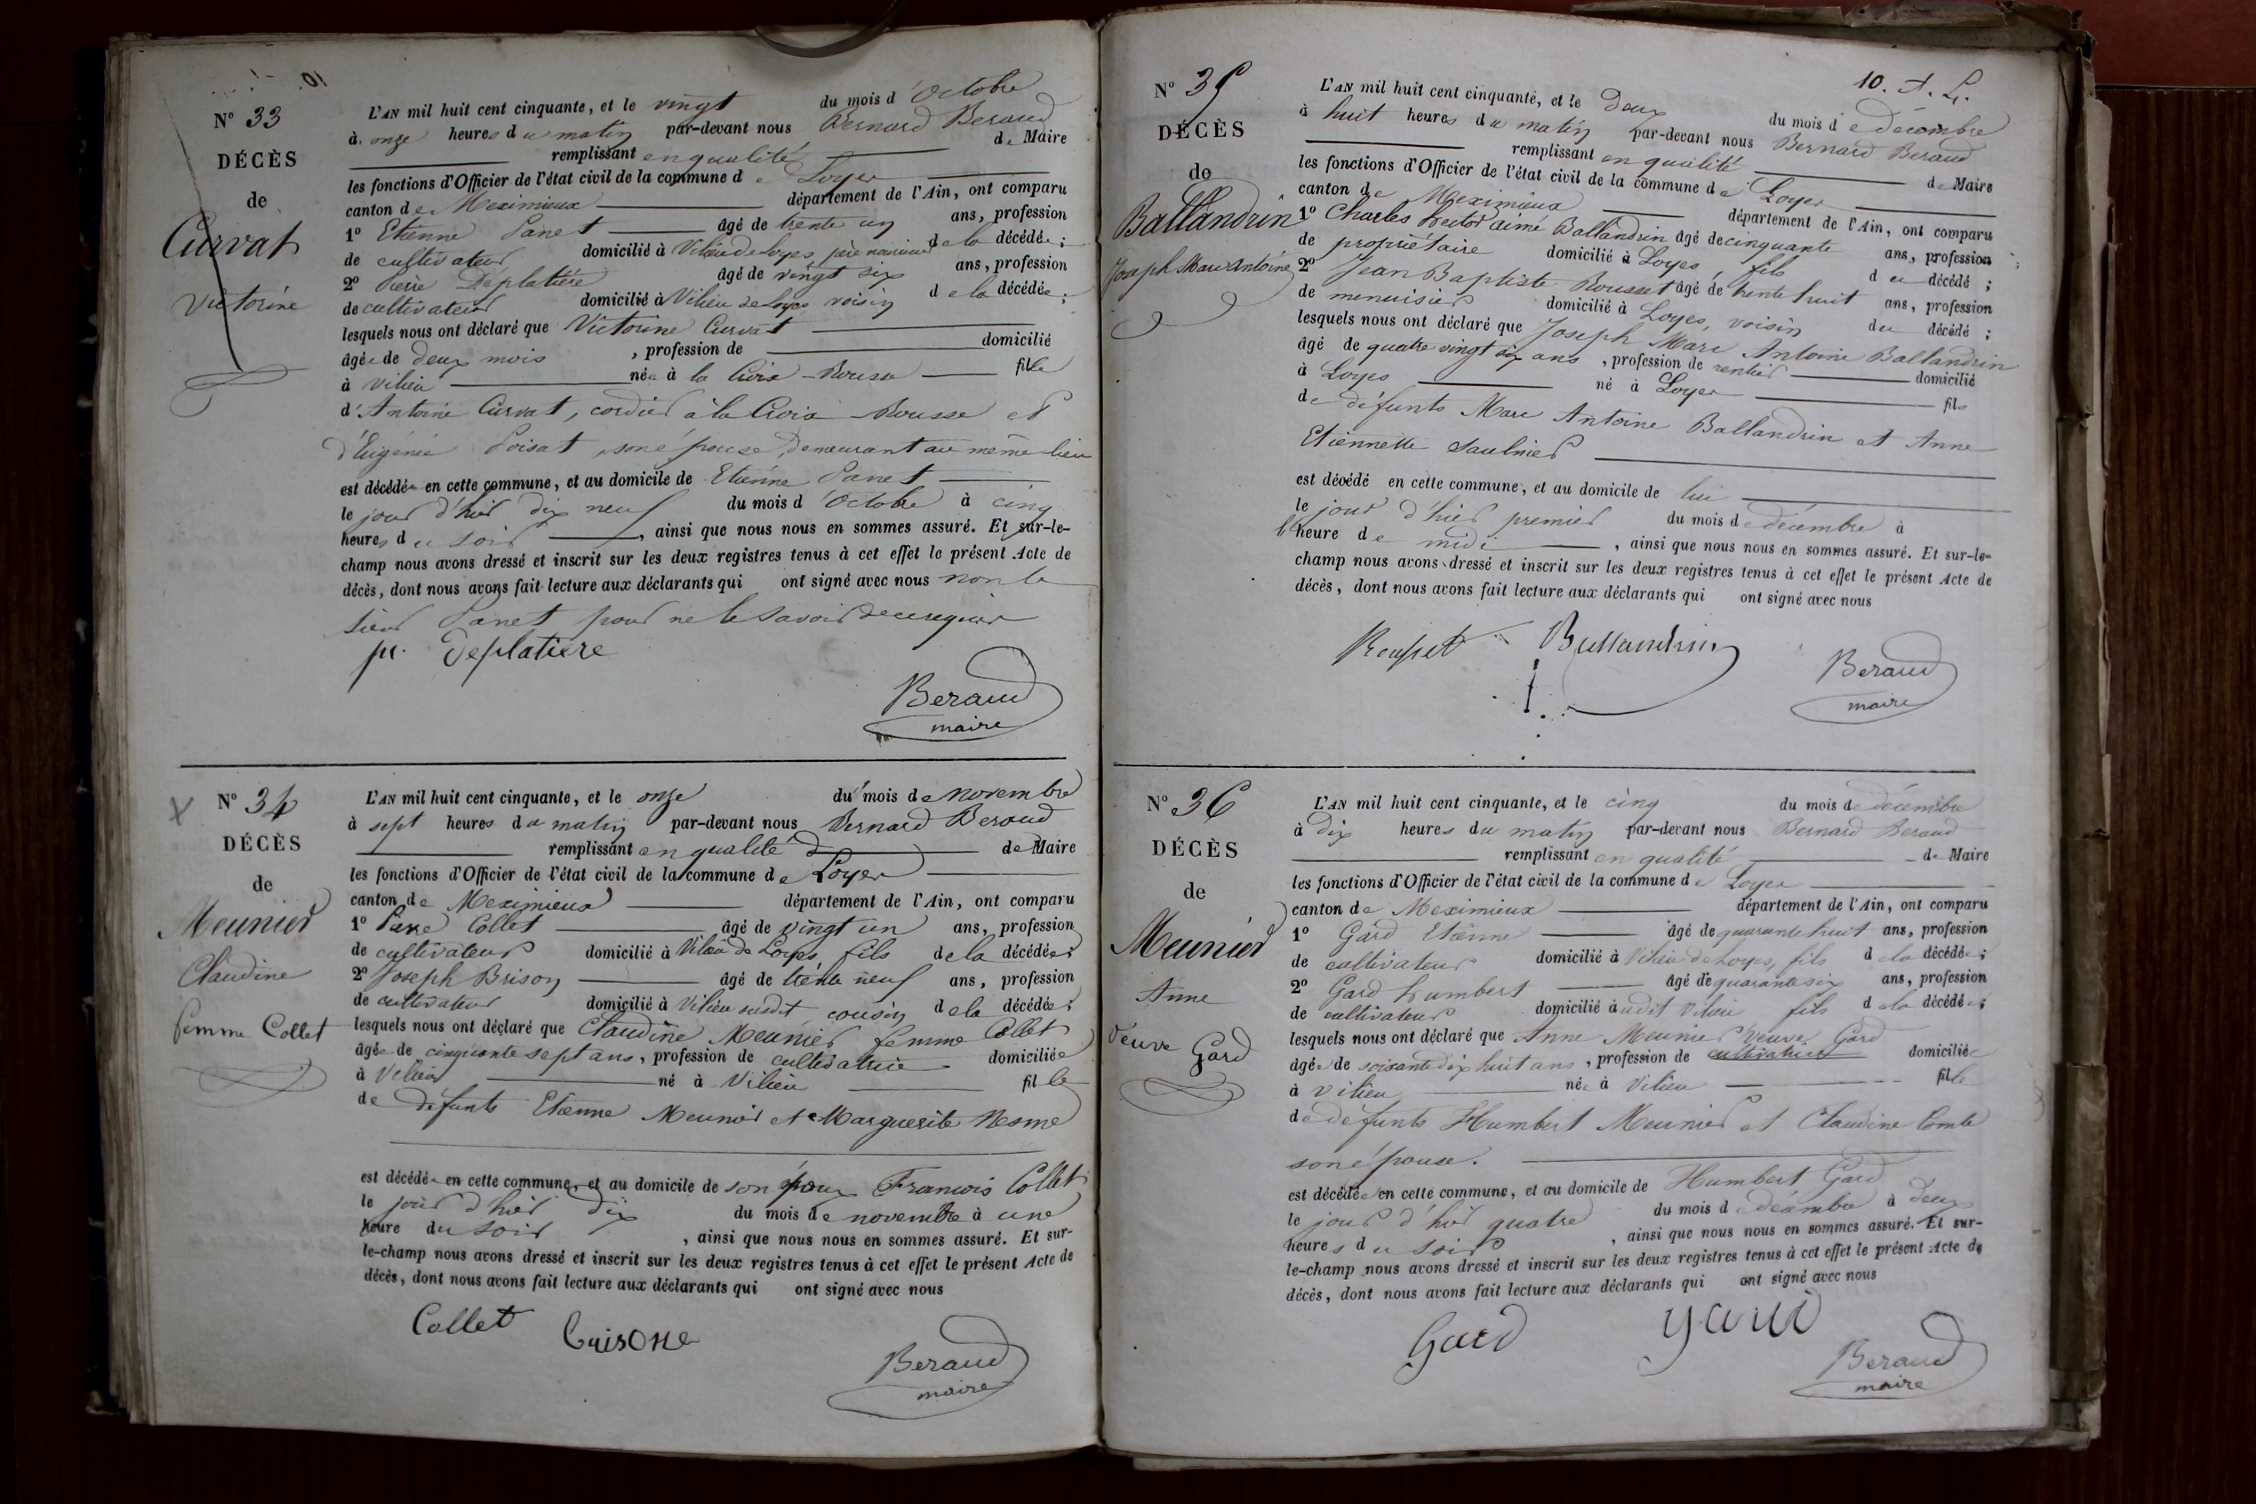 N° 33
DÉCÈS
de
Curvat
Victorine
L'AN mil huit cent cinquante, et le vingt du mois d'Octobre
à onze heures du matin par-devant nous Bernard Beraud
remplissant en qualité de Maire
les fonctions d'Officier de l'état civil de la commune de Loyes
canton de Meximieux département de l'Ain, ont comparu
1° Etienne Panet âgé de trente un ans, profession
de cultivateur domicilié à Vilieu de Loyes père nourricier de la décédée ;
2° Pierre Déplatière âgé de vingt six ans, profession
de cultivateur domicilié à Vilieu de Loyes voisin de la décédée ;
lesquels nous ont déclaré que Victorine Curvat
âgée de deux mois , profession de domicilié
à Vilieu née à la Croix-Rousse fille
d'Antoine Curvat, cordier à la Croix-Rousse et
d'Eugénie Poisat, son épouse, demeurant au même lieu
est décédée en cette commune, et au domicile de Etienne Panet
le jour d'hier dix neuf du mois d'Octobre à cinq
heures du soir , ainsi que nous nous en sommes assuré. Et sur-le-
champ nous avons dressé et inscrit sur les deux registres tenus à cet effet le présent Acte de
décès, dont nous avons fait lecture aux déclarants qui ont signé avec nous non le
sieur Panet pour ne le savoir de ce requis
pr. Deplatiere
Beraud
maire
N° 34
DÉCÈS
de
Meunier
Claudine
femme Collet
L'AN mil huit cent cinquante, et le onze du mois de novembre
à sept heures du matin par-devant nous Bernard Beraud
remplissant en qualité de Maire
les fonctions d'Officier de l'état civil de la commune de Loyes
canton de Meximieux département de l'Ain, ont comparu
1° Pierre Collet âgé de vingt un ans, profession
de cultivateur domicilié à Vilieu de Loyes, fils de la décédée ;
2° Joseph Brison âgé de trente neuf ans, profession
de cultivateur domicilié à Vilieu susdit cousin de la décédée ;
lesquels nous ont déclaré que Claudine Meunier femme Collet
âgée de cinquante sept ans, profession de cultivatrice domiciliée
à Vilieu né à Vilieu fille
de défunts Etienne Meunier et Marguerite Nesme
est décédée en cette commune, et au domicile de son époux François Collet
le jour d'hier dix du mois de novembre à une
heure du soir , ainsi que nous nous en sommes assuré. Et sur-
le-champ nous avons dressé et inscrit sur les deux registres tenus à cet effet le présent Acte de
décès, dont nous avons fait lecture aux déclarants qui ont signé avec nous
Collet
Brisone
Beraud
maire
10.
N° 35
DÉCÈS
de
Ballandrin
Joseph Marc Antoine
L'AN mil huit cent cinquante, et le deux du mois de décembre
à huit heures du matin par-devant nous Bernard Beraud
remplissant en qualité de Maire
les fonctions d'Officier de l'état civil de la commune de Loyes
canton de Meximieux département de l'Ain, ont comparu
1° Charles hector aimé Ballandrin âgé de cinquante ans, profession
de propriétaire domicilié à Loyes, fils du décédé ;
2° Jean Baptiste Rousset âgé de trente huit ans, profession
de menuisier domicilié à Loyes, voisin du décédé ;
lesquels nous ont déclaré que Joseph Marc Antoine Ballandrin
âgé de quatre vingt six ans , profession de rentier domicilié
à Loyes né à Loyes fils
de défunts Marc Antoine Ballandrin et Anne
Etiennette Saulnier
est décédé en cette commune, et au domicile de lui
le jour d'hier premier du mois de décembre à
l'heure de midi , ainsi que nous nous en sommes assuré. Et sur-le-
champ nous avons dressé et inscrit sur les deux registres tenus à cet effet le présent Acte de
décès, dont nous avons fait lecture aux déclarants qui ont signé avec nous
Rousset
Ballandrin
Beraud
maire
N° 36
DÉCÈS
de
Meunier
Anne
veuve Gard
L'AN mil huit cent cinquante, et le cinq du mois de décembre
à dix heures du matin par-devant nous Bernard Beraud
remplissant en qualité de Maire
les fonctions d'Officier de l'état civil de la commune de Loyes
canton de Meximieux département de l'Ain, ont comparu
1° Gard Etienne âgé de quarante huit ans, profession
de cultivateur domicilié à Vilieu de Loyes, fils de la décédée ;
2° Gard humbert âgé de quarante six ans, profession
de cultivateur domicilié audit Vilieu fils de la décédée ;
lesquels nous ont déclaré que Anne Meunier veuve Gard
âgée de soixante dix huit ans , profession de cultivatrice domiciliée
à Vilieu née à Vilieu fille
de défunts Humbert Meunier et Claudine Comte
son épouse.
est décédée en cette commune, et au domicile de Humbert Gard
le jour d'hier quatre du mois de décembre à deux
heures du soir , ainsi que nous nous en sommes assuré. Et sur-
le-champ nous avons dressé et inscrit sur les deux registres tenus à cet effet le présent Acte de
décès, dont nous avons fait lecture aux déclarants qui ont signé avec nous
Gard
gard
Beraud
maire